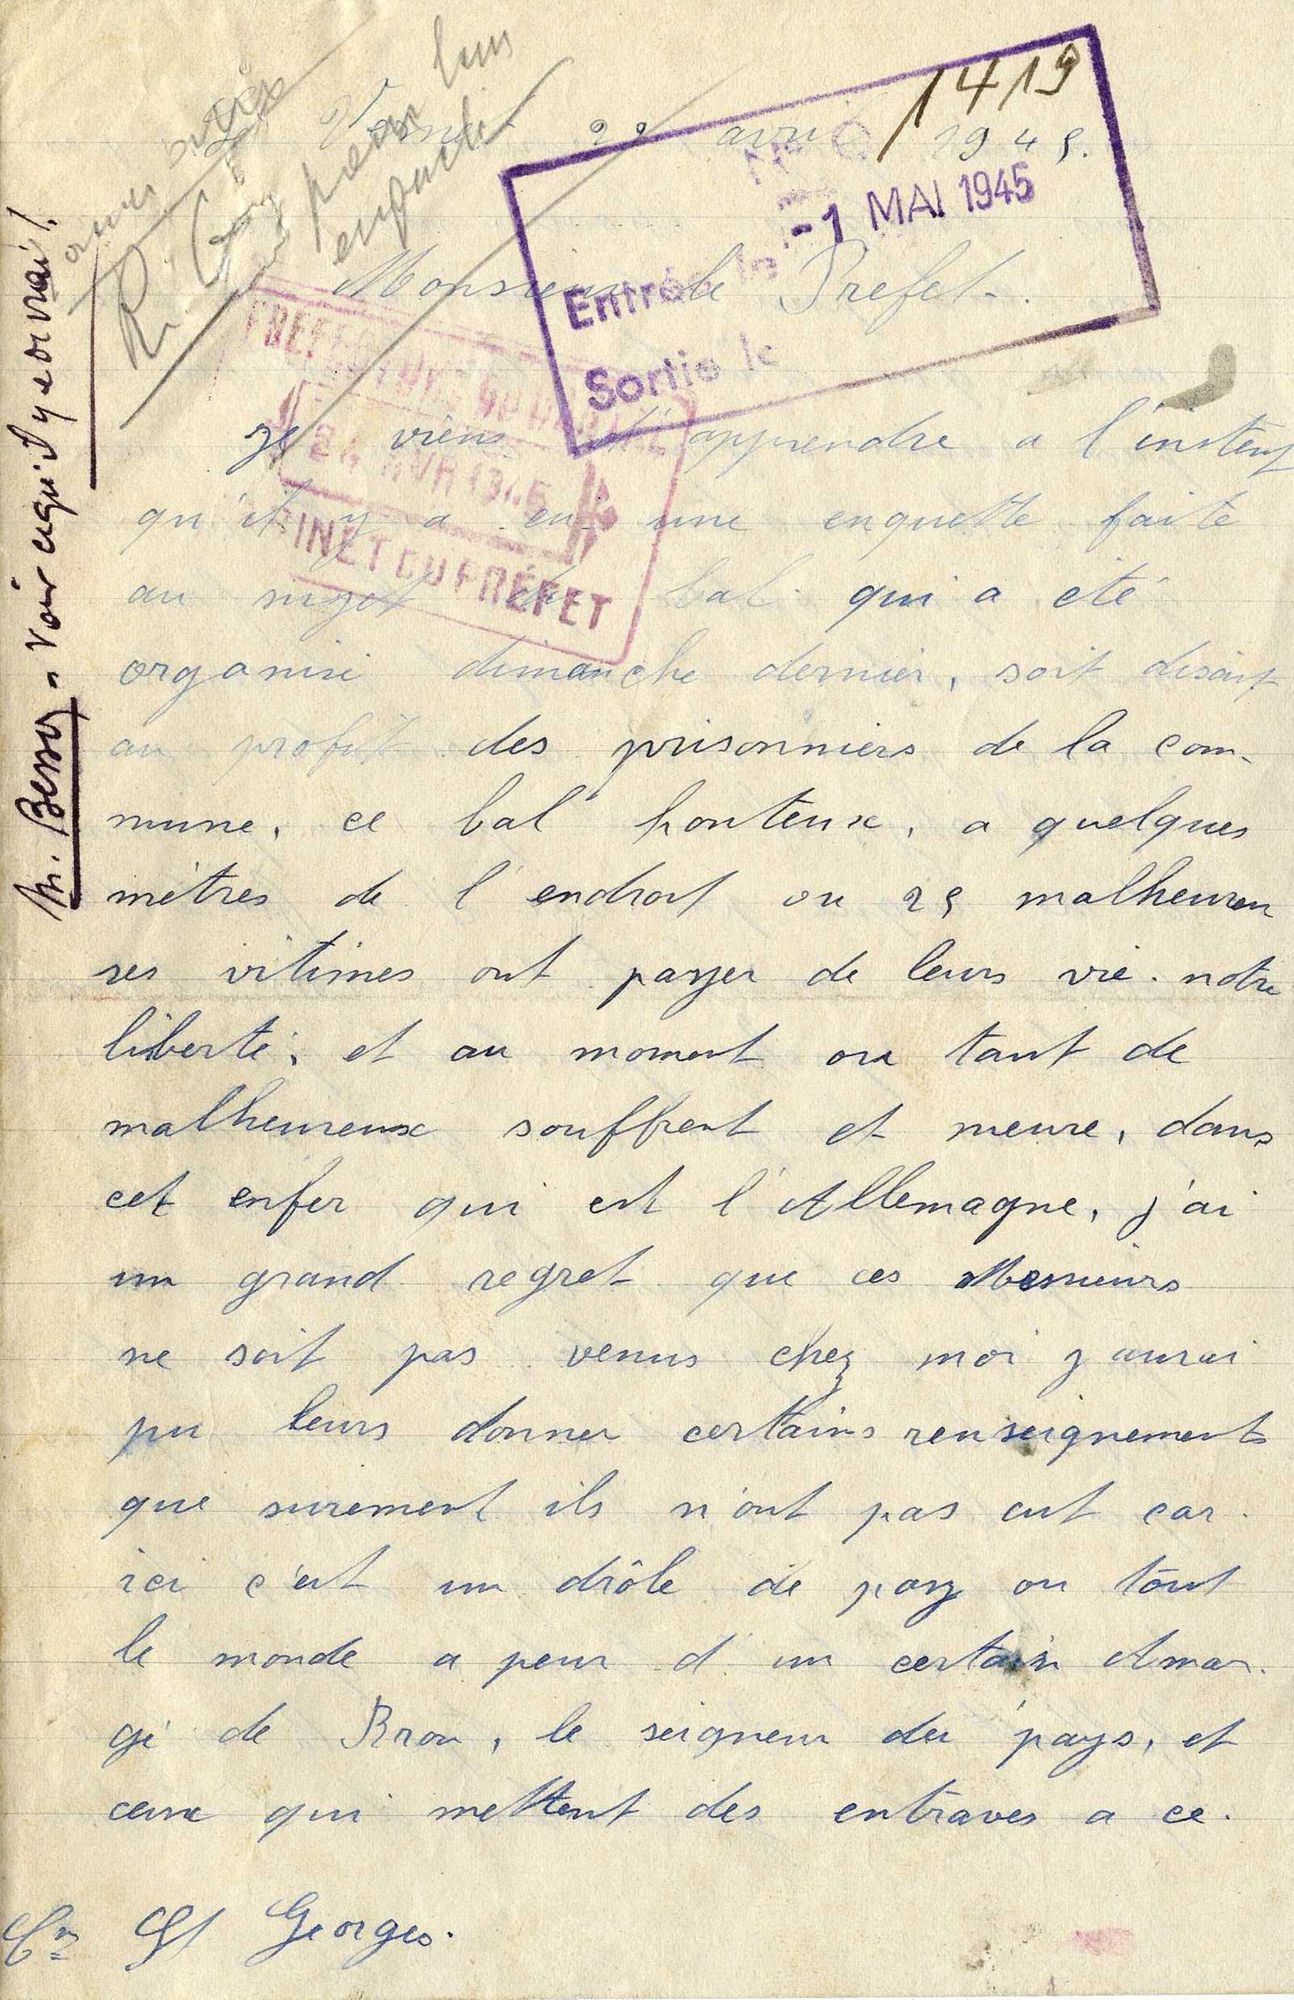 1419
avril 1945.
- 1 MAI 1945
Entrée le
Sortie le
Monsieur le Prefet.
M. Besson - Voir ce qu'il y a de vrai!
R. Gx pour leus
enquete
PREFECTURE DU RHONE
24 AVR 1945
CABINET DU PRÉFET
Je viens d'apprendre a l'instent
qu'il y a eu une enquette faite
au sujet du bal qui a été
organisé dimanche dernier, soit disant
au profit des prisonniers de la com-
mune, ce bal honteux, a quelques
mètres de l'endroit ou 25 malheureu
ses vitimes ont payer de leurs vie notre
liberté, et au moment ou tant de
malheureux souffrent et meure, dans
cet enfer qui est l'Allemagne, j'ai
un grand regret que ces Messieurs
ne soit pas venus chez moi j'aurai
pu leurs donner certains renseignements
que surement ils n'ont pas eut car
ici c'est un drôle de pays ou tout
le monde a peur d'un certain Amar-
gi de Bron, le seigneur du pays, et
ceux qui mettent des entraves a ce.
St Georges.